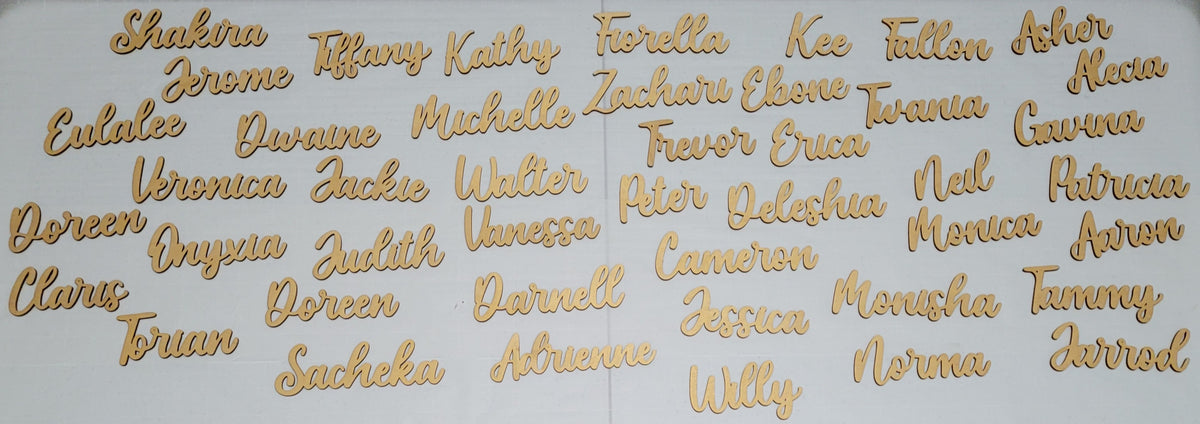 Shakira
Tiffany
Kathy
Fiorella
Kee
Fallon
Asher
Jerome
Zachari
Ebone
Alecia
Eulalee
Dwaine
Michelle
Twania
Gavina
Trevor
Erica
Veronica
Jackie
Walter
Peter
Deleshia
Neil
Patricia
Doreen
Onyxia
Judith
Vanessa
Monica
Aaron
Cameron
Claris
Doreen
Darnell
Jessica
Monisha
Tammy
Torian
Sacheka
Adrienne
Willy
Norma
Jarrod